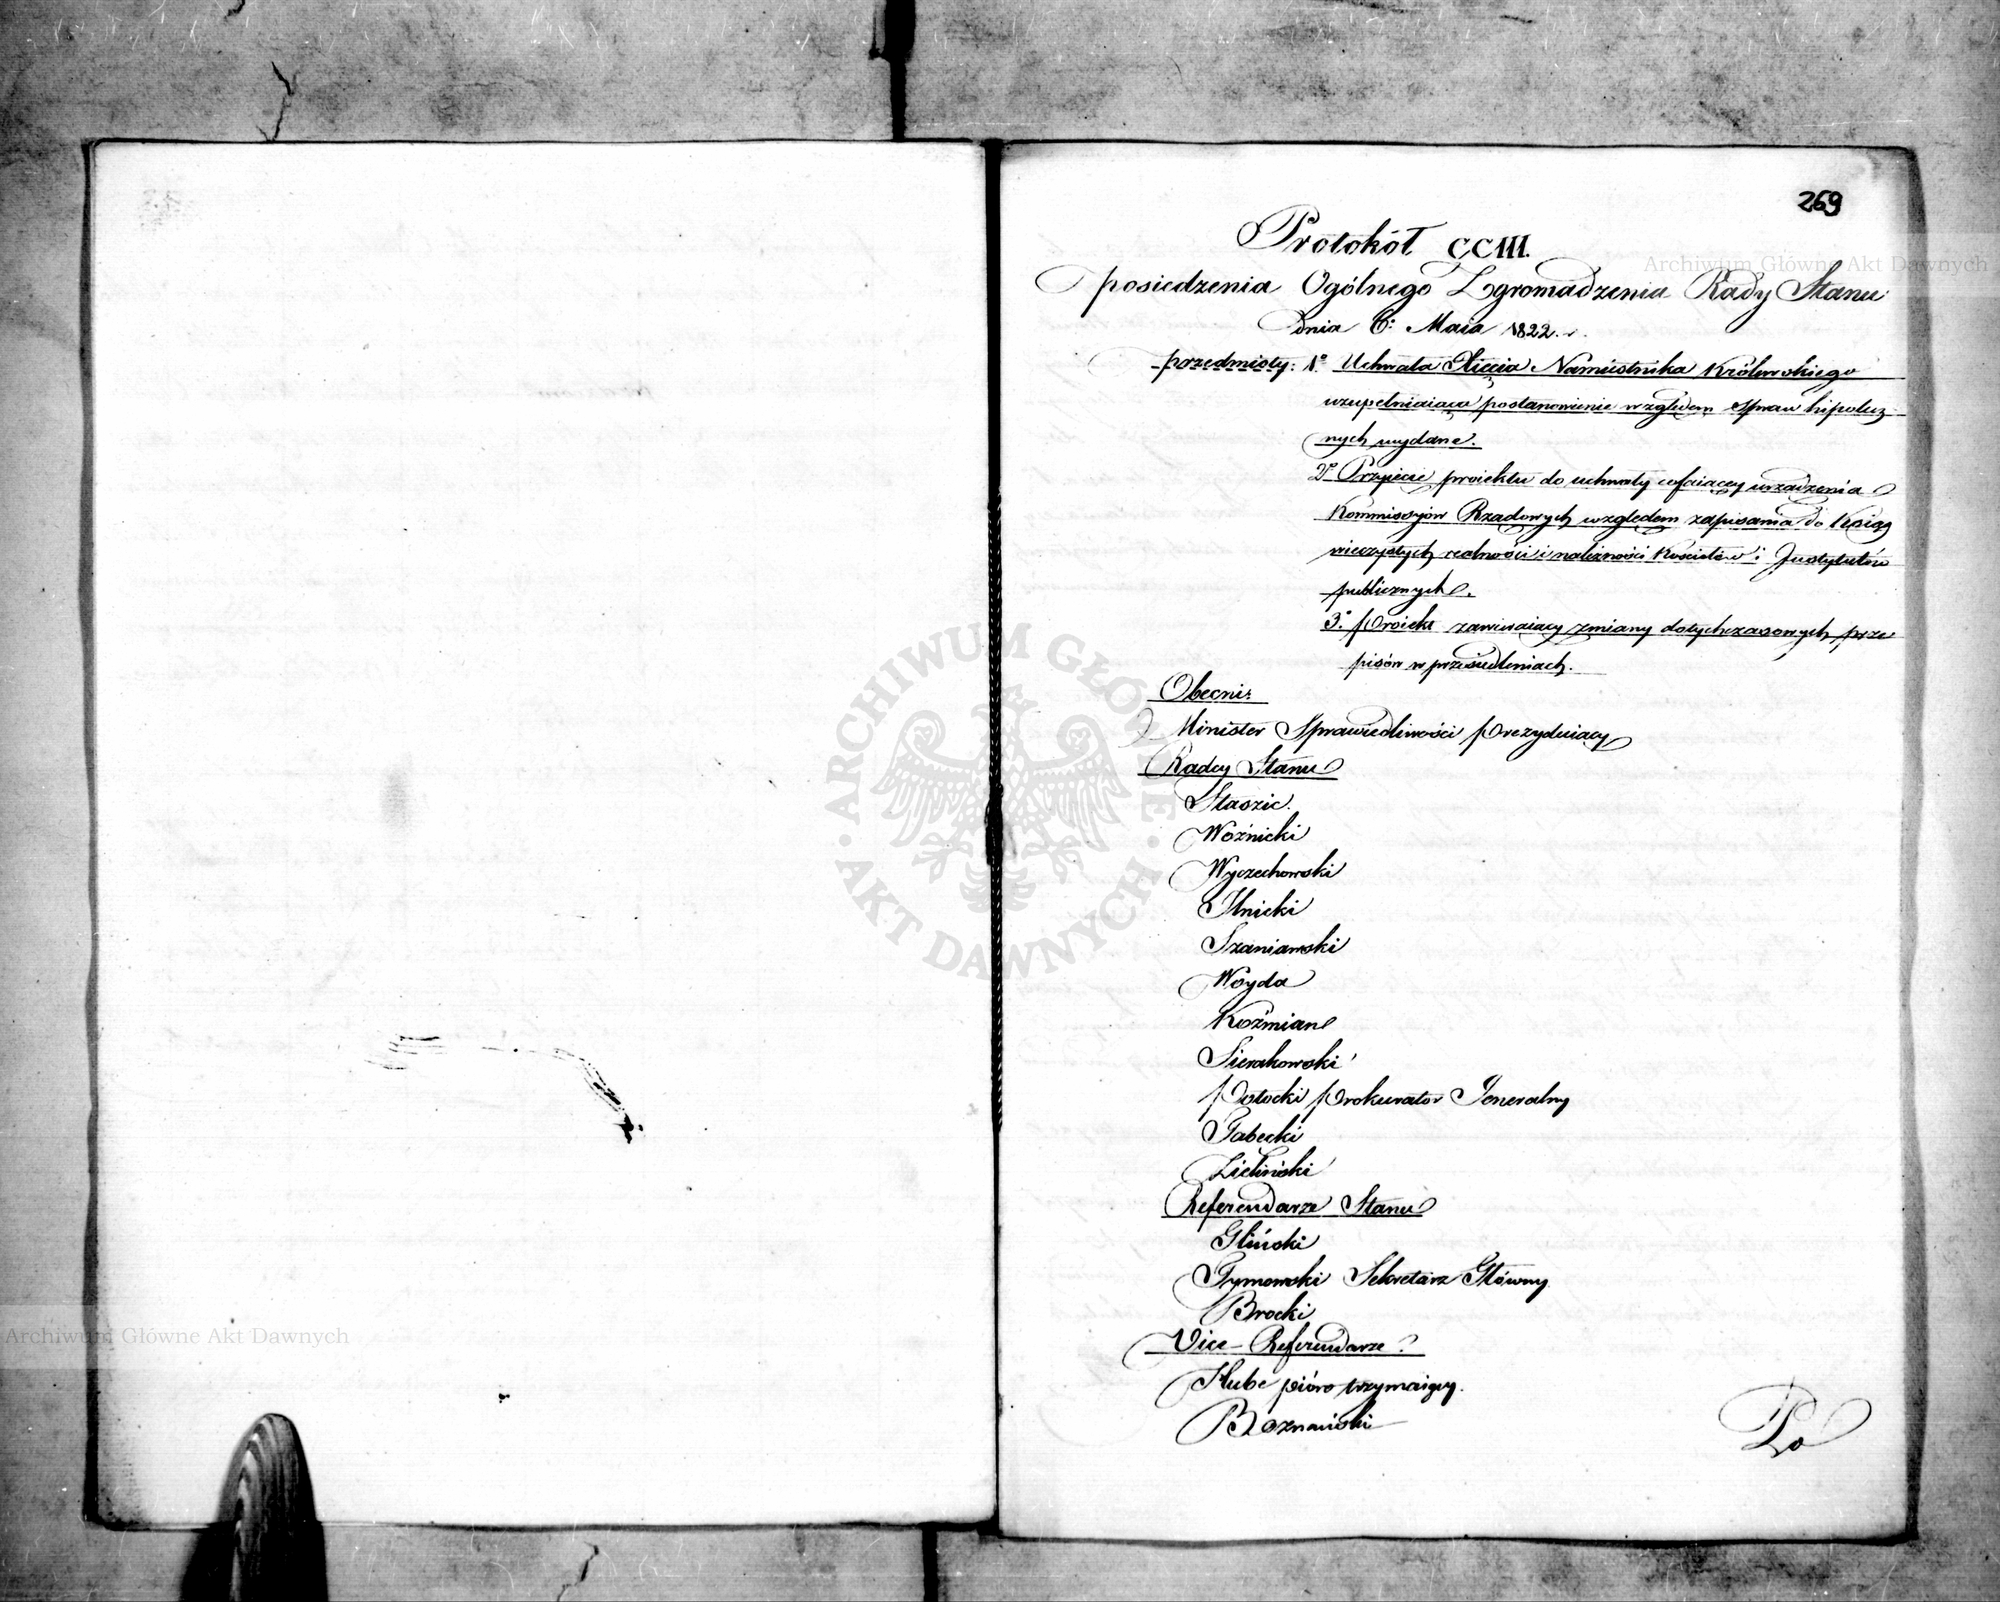 269
Protokół CCIII.
posiedzenia Ogólnego Zgromadzenia Rady Stanu
dnia 6: Maia 1822.
przedmioty: 1º Uchwała Xiecia Namiestnika Królewskiego
uzupełniaiąca postanowienie względem spraw hipotecz
nych wydane.
2º Przyięcie proiektu do uchwały cofaiącey urządzenia
Kommissyów Rządowych względem zapisania do Ksiąg
wieczystych realności i należności Kościołów i Instytutów
publicznych.
3º proiekt zawieraiący zmiany dotychczasowych prze
pisów w przesiedleniach.
Obecni:
Minister Sprawiedliwości prezyduiący
Radcy Stanu
Staszic.
Woźnicki
Wyczechowski
Ilnicki
Szaniawski
Woyda
Koźmian
Sierakowski
Potocki prokurator Jeneralny
Tabęcki
Zieliński
Referendarze Stanu
Gliński
Tymowski Sekretarz Główny
Brocki
Vice-Referendarze
Hube pióro trzymaiący.
Boznański
Po
Archiwum Główne Akt Dawnych
Archiwum Główne Akt Dawnych
ARCHIWUM GŁÓWNE
AKT DAWNYCH